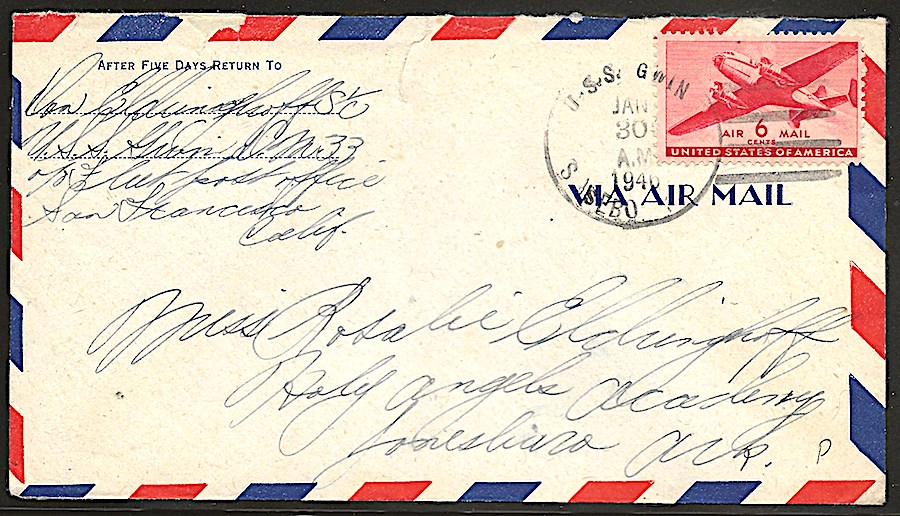 AFTER FIVE DAYS RETURN TO
Von Eldringhoff S1/c
U.S.S. Gwin D.M. 33
c/o Fleet post office
San Francisco
Calif.
U.S.S. GWIN
JAN
30
A.M.
1946
SASEBO
AIR 6 MAIL
CENTS
UNITED STATES OF AMERICA
VIA AIR MAIL
Miss Rosalie Eldringhoff
Holy angels academy
Jonesboro Ark.
P